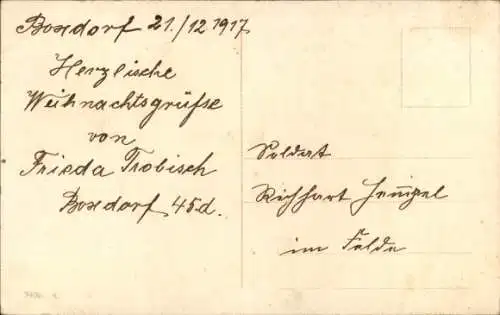 Boxdorf 21./12 1917
Herzlische
Weihnachtsgrüße
von
Frieda Trobisch
Boxdorf 45d.
Soldat
Richhart
im Felde